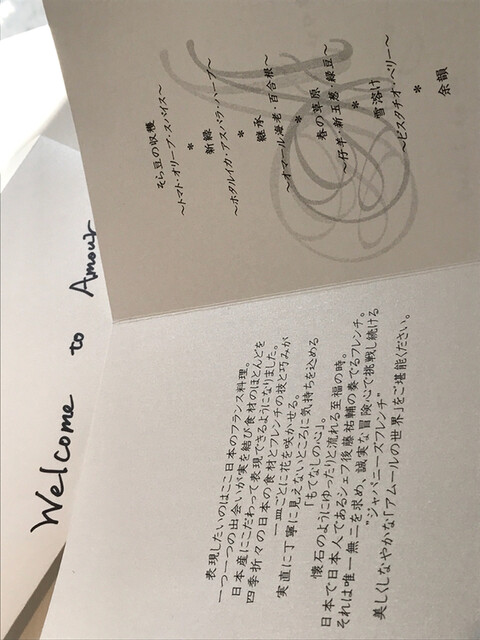 Welcome to Amour
表現したいのはここ日本のフランス料理。
一つ一つの出会いが実を結び食材のほとんどを
日本産にこだわって表現できるようになりました。
四季折々の日本の食材とフレンチの技と巧みが
一皿ごとに花を咲かせる。
実直に丁寧に見えないところに気持ちを込める
「もてなしの心」。
懐石のようにゆったりと流れる至福の時。
日本で日本人であるシェフ後藤祐輔の奏でるフレンチ。
それは唯一無二を求め、誠実な冒険心で挑戦し続ける
"ジャパニーズフレンチ"
美しくしなやかな「アムールの世界」をご堪能ください。
そら豆の収穫
～トマト・オリーブ・スパイス～
*
新緑
～ホタルイカ・アスパラ・ハーブ～
*
継承
～オマール海老・百合根～
*
春の草原
～仔羊・新玉葱・緑豆～
*
雪溶け
～ピスタチオ・ベリー～
*
余韻